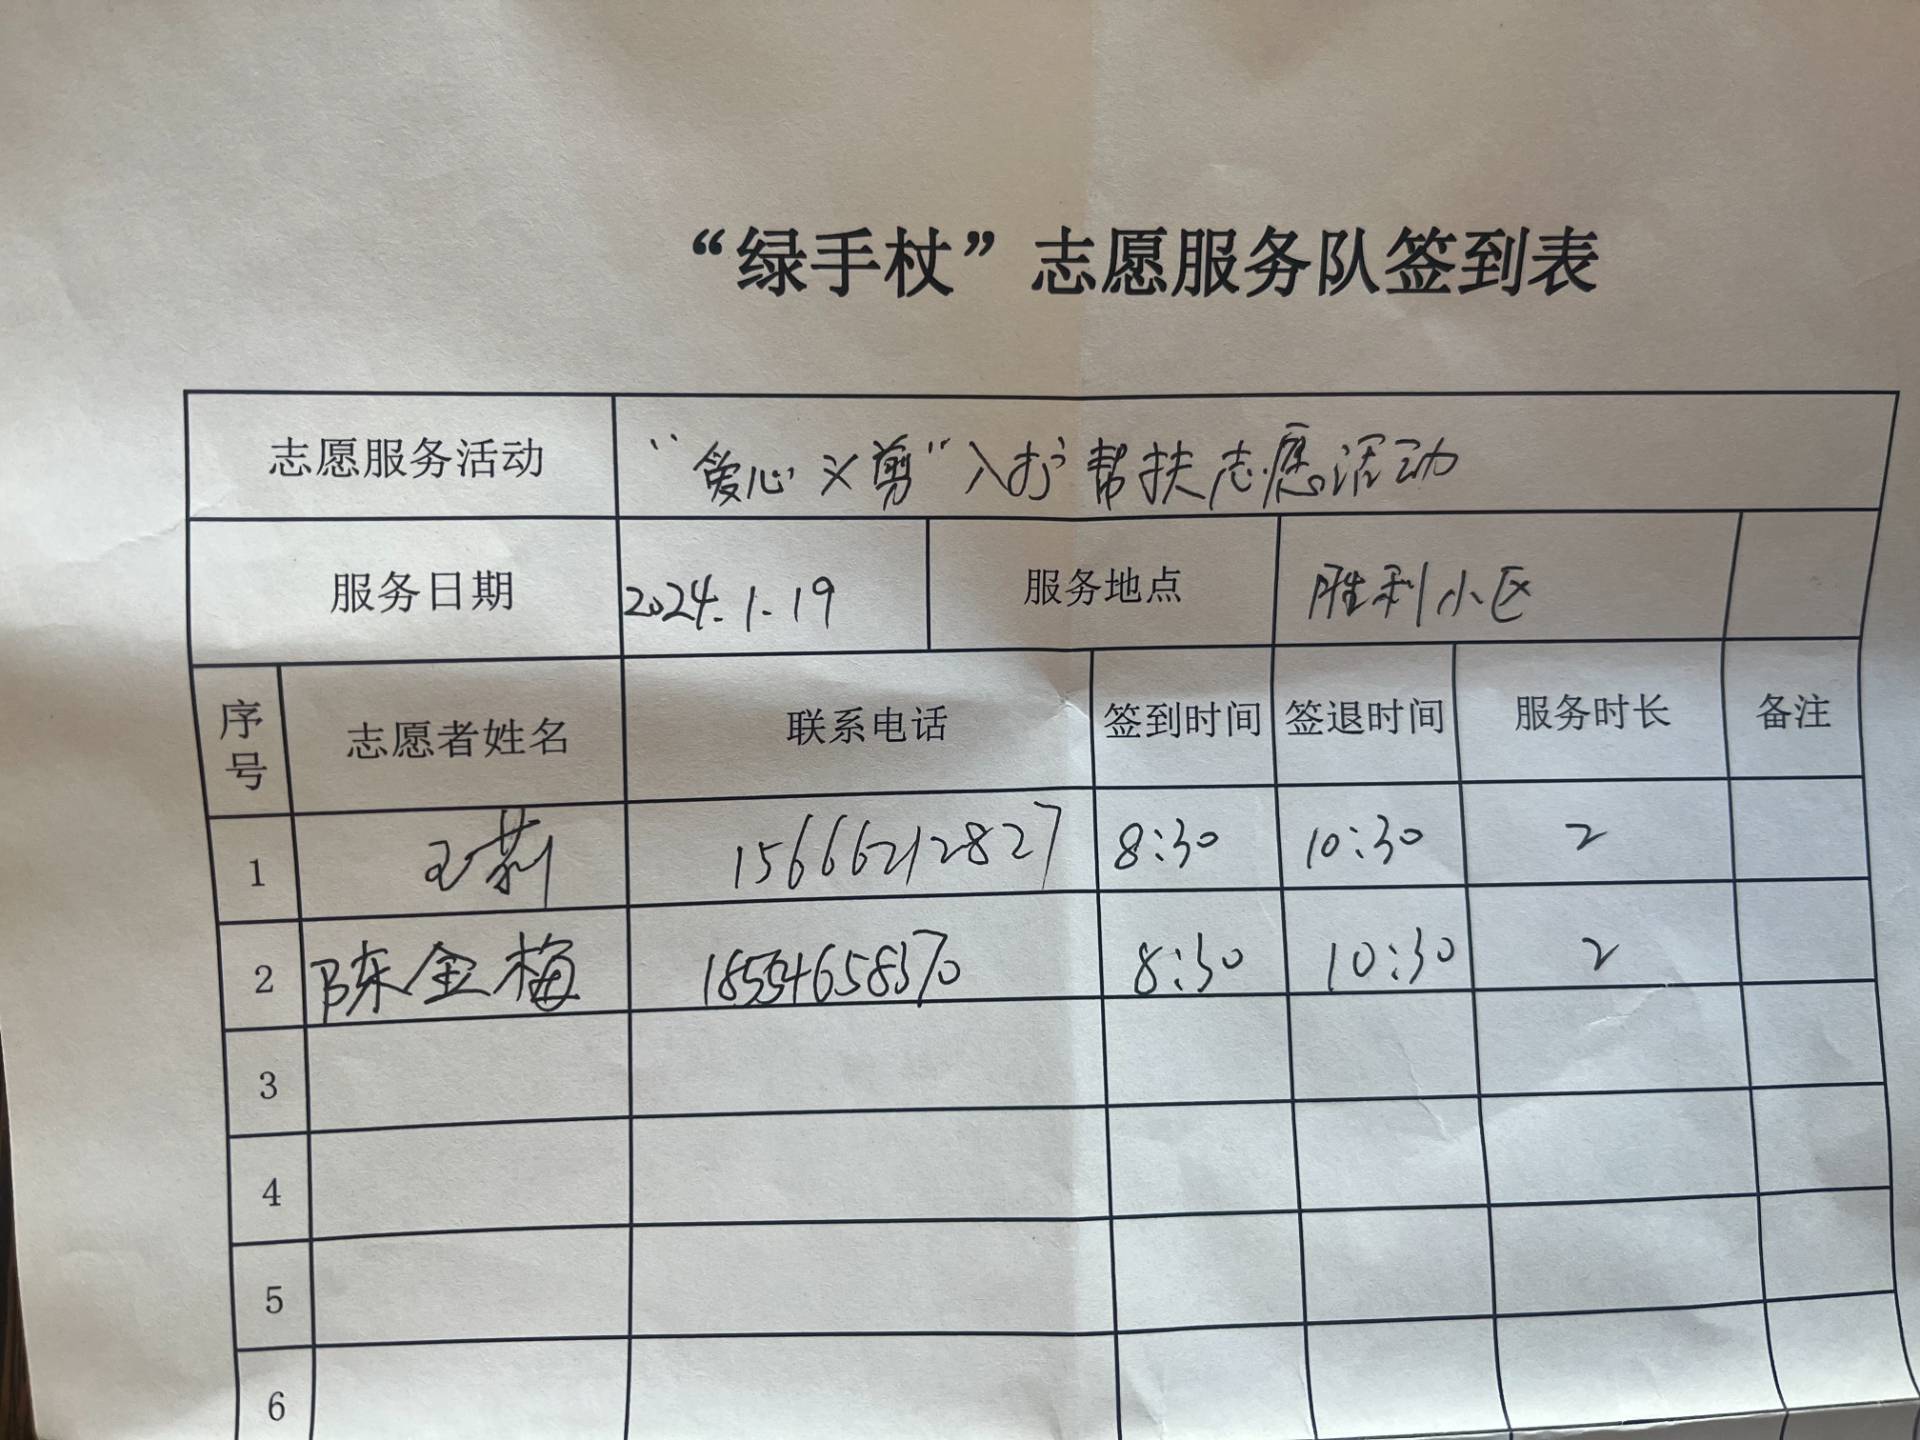 “绿手杖”志愿服务队签到表
志愿服务活动 “爱心义剪”入户帮扶志愿活动
服务日期 2024.1.19 服务地点 胜利小区
序号 志愿者姓名 联系电话 签到时间 签退时间 服务时长 备注
1 王莉 15666212827 8:30 10:30 2
2 陈金梅 18554658370 8:30 10:30 2
3
4
5
6